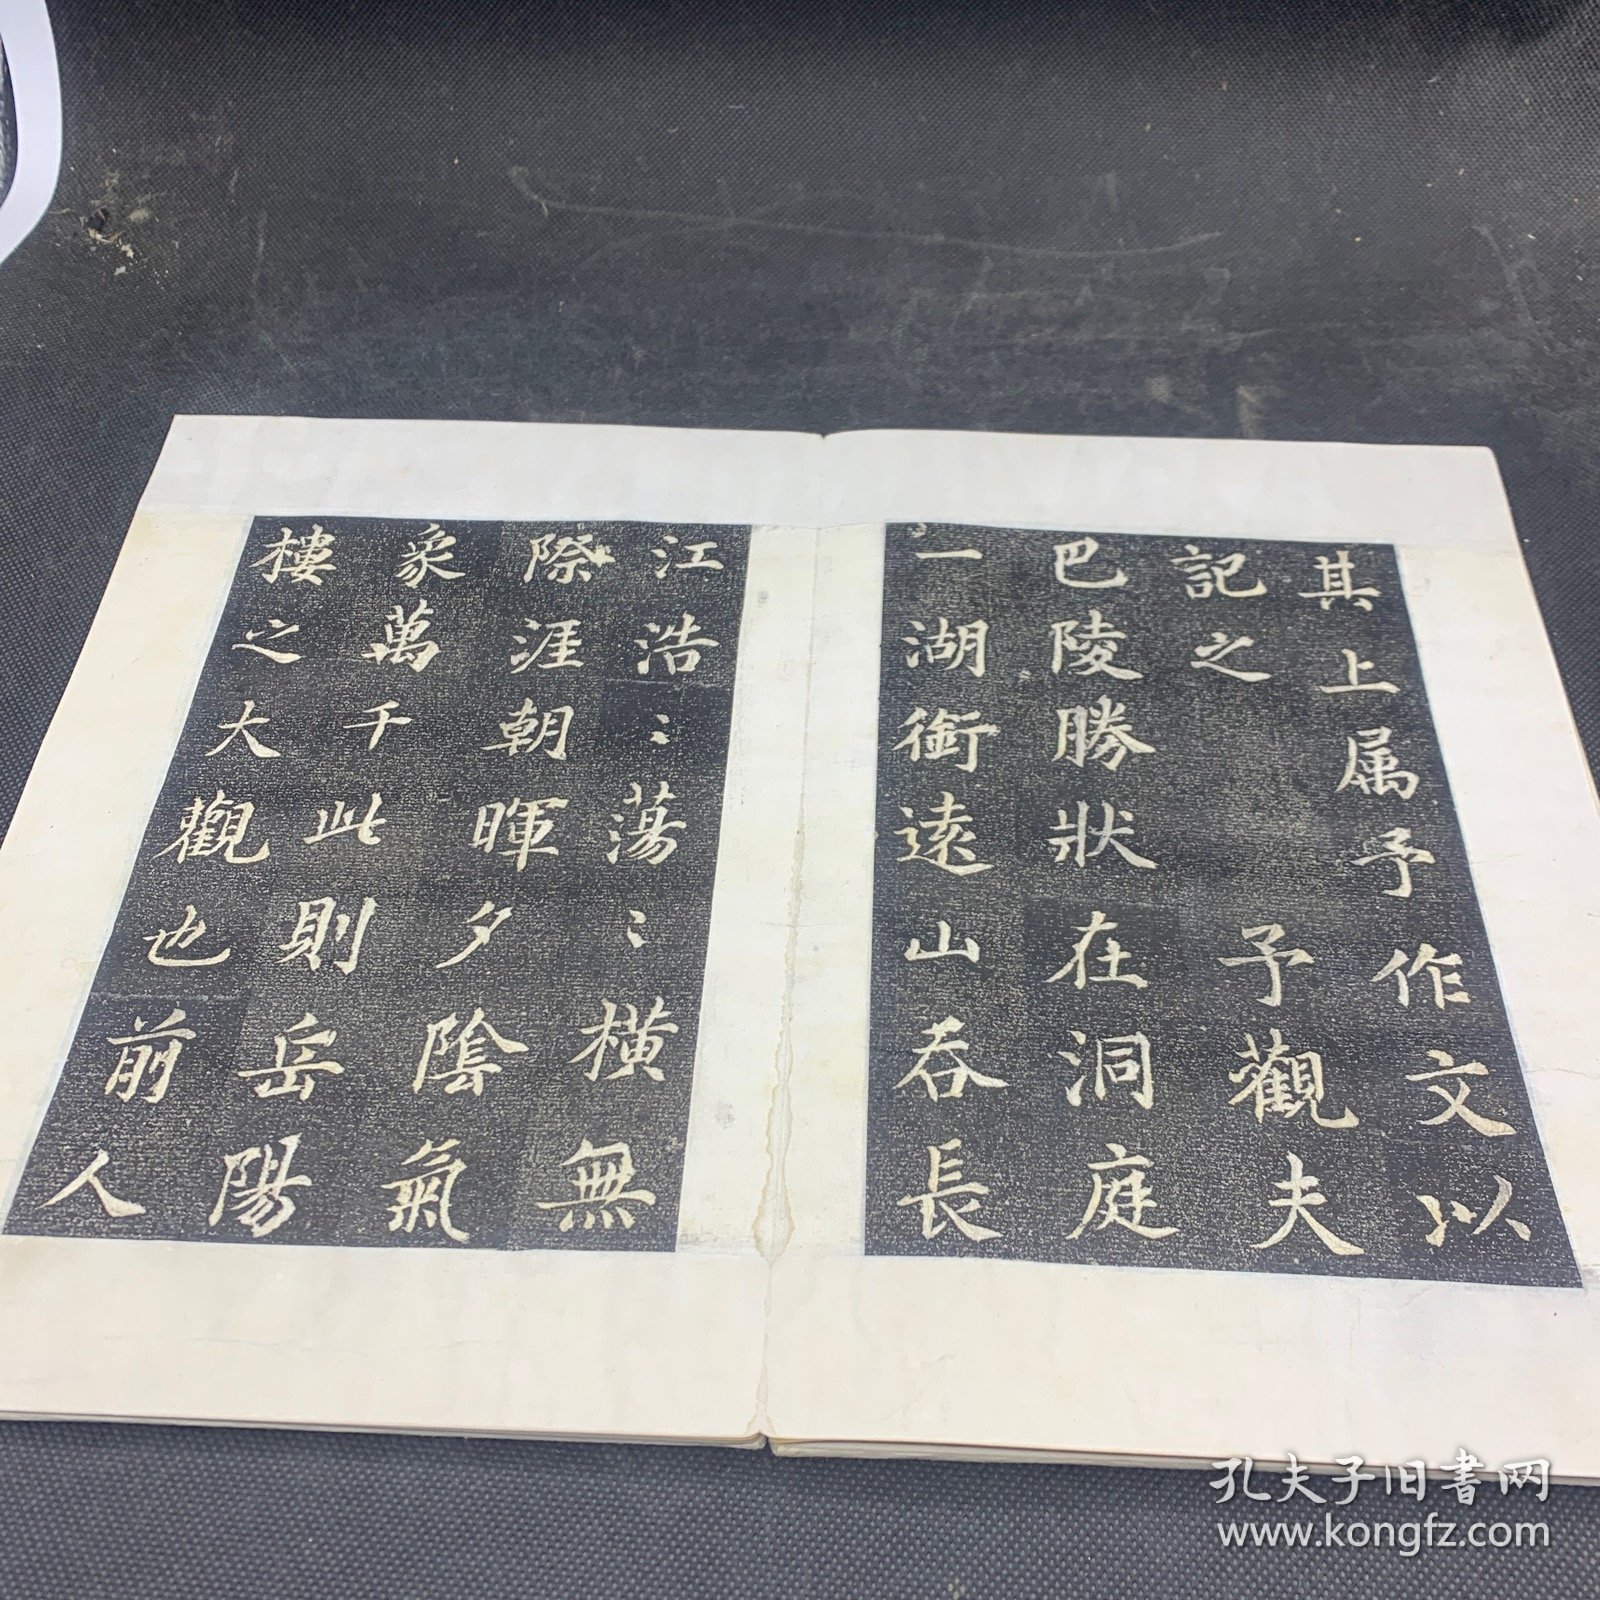 其上属予作文以
記之　予觀夫
巴陵勝狀在洞庭
一湖銜遠山吞長
江浩〻蕩〻橫無
際涯朝暉夕陰氣
象萬千此則岳陽
樓之大觀也前人
孔夫子旧书网
www.kongfz.com